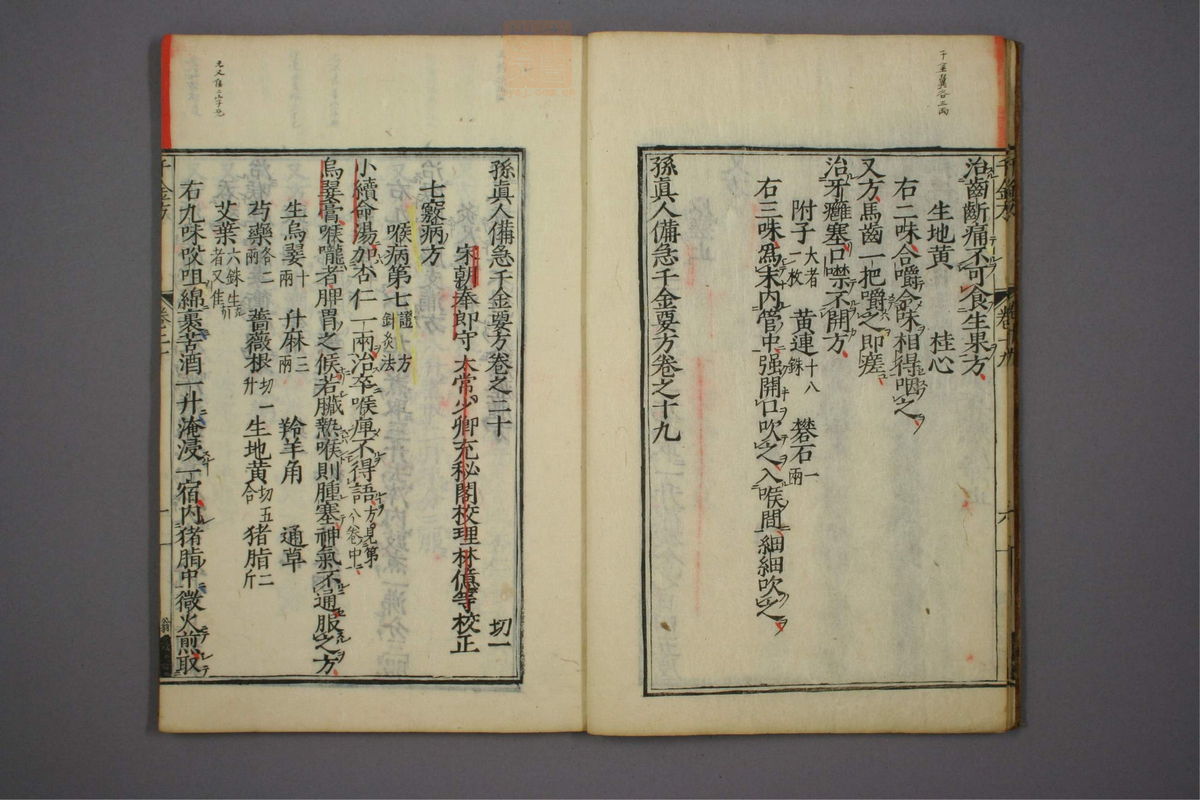 千金翼各三兩
治齒斷痛不可食生果方
生地黄 桂心
右二味合嚼令味相得咽之
又方馬齒一把嚼之即瘥
治牙癰塞口噤不開方
附子大者一枚 黄連十八銖 礬石一兩
右三味爲末内管中强開口吹之入喉間細細吹之
孫眞人備急千金要方卷之十九
孫眞人備急千金要方卷之二十 切一
宋朝奉郎守太常少卿充秘閣校理林億等校正
七竅病方
喉病第七證方針灸法
小續命湯加杏仁一兩治卒喉痺不得語方見第八卷中
烏翣膏喉嚨者脾胃之候若臟熱喉則腫塞神氣不通服之方
生烏翣十兩 升麻三兩 羚羊角 通草
芍藥各二兩 薔薇根切一升 生地黄切五合 猪脂二斤
艾葉六銖生者又隹
右九味㕮咀綿裹苦酒一升淹浸一宿内猪脂中微火煎取
千金方
卷二十